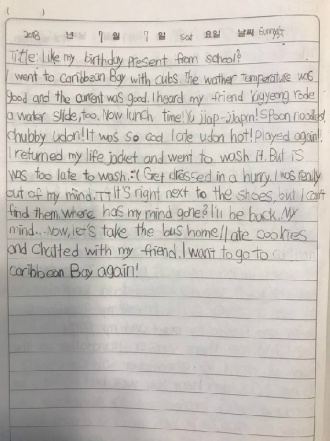 ( )
2018 년 7월 7일 sat 요일 날씨 sunny
Title: Like my birthday present from school?
I went to caribbean Bay with cubs. the wather temperature was
good and the current was good. I heard my friend Yugyeong rode
a water slide, too. Now lunch time! Yu jjap-jjapm! Spoon noodles!
chubby udon! It was so cool, I ate udon hot! played again!
I returned my life jacket and went to wash it. But is
was too late to wash. :( Get dressed in a hurry. I was really
out of my mind. ㅜㅜ It's right next to the shoes, but I can't
find them. where has my mind gone? I'll be back. My
mind... Now, let's take the bus home! I ate cookies
and chatted with my friend. I want to go to
caribbean Bay again!